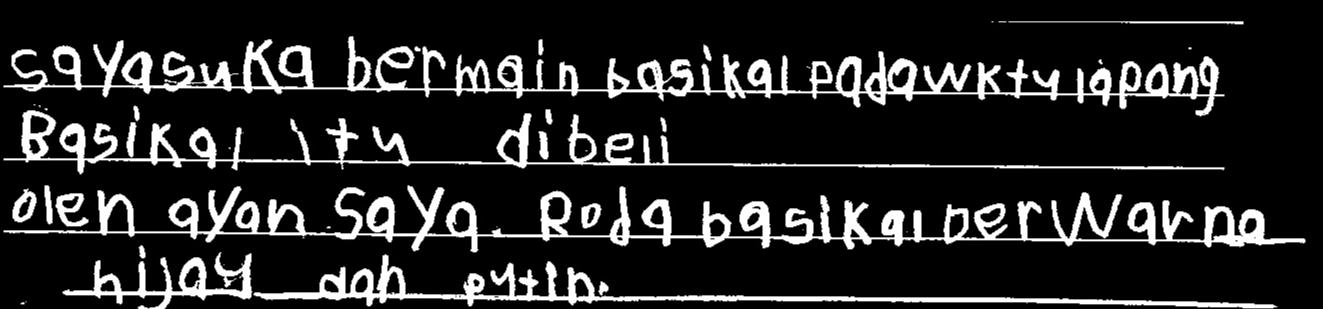 sayasuka bermain basikal padawktu lapang
Basikal itu dibeli
oleh ayah saya. Roda basikal berwarna
hijau dah putih.